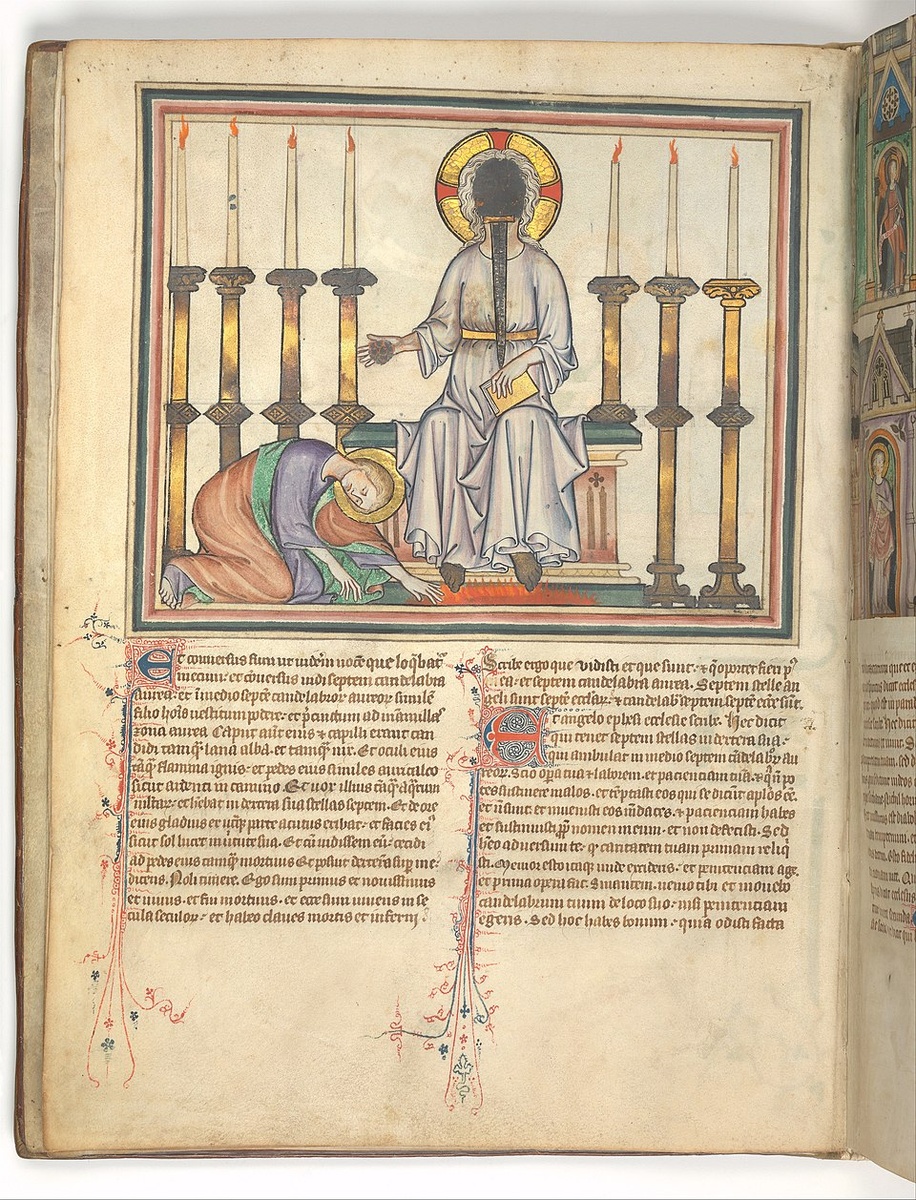 Et conversus sum ut viderem vocē que loq̄bat̄
mecum: et cōversus vidi septem candelabra
aurea: et ī medio septē candelabror̄ aureor̄ similē
filio hoīs vestitum podere: et p̄cinctum ad mamillas
zona aurea Caput aut̄ eius ⁊ capilli erant can
didi tamq̄ lana alba. et tamq̄ nix. Et oculi eius
tāq̄ flamma ignis: et pedes eius similes auricalco
sicut ardenti in camino. Et vox illius tāq̄ aquar̄
multar̄: et h̄ebat in dextera sua stellas septem. Et de ore
eius gladius ex utq̄ parte acutus exibat: et facies eiꝰ
sicut sol lucet in virtute sua. Et cū vidissem eū: cecidi
ad pedes eius tamq̄ mortuus Et posuit dexterā sup̄ me:
dicens. Noli timere. Ego sum primus et novissimus
et vivus. et fui mortuus. et ecce sum vivens in se
cula seculor̄: et habeo claves mortis et inferni.
Scribe ergo que vidisti et que sunt: ⁊ q̄ oportet fieri pꝰ
ea. et septem candelabra aurea. Septem stelle an
geli sunt septē eccl̄iar̄: ⁊ candelab̄ septem septē ecc̄e sūt.
Et angelo ephesi ecclesie scribe. Hec dicit
qui tenet septem stellas in dextera sua:
qui ambulat in medio septem cādelabr̄ au
reor̄. Scio opa tua ⁊ laborem. et pacienciam tuā: ⁊ q̄ n̄ po
tes sustinere malos. et tēptasti eos qui se dicūt apl̄os eē.
et n̄ sunt: et invenisti eos mēdaces: ⁊ pacienciam habes
et sustinuisti pp̄ nomen meum. et non defecisti. Sed
h̄eo adversum te: q̄ caritatem tuam primam reliq̄
sti. Memor esto itaq̄ unde excideris: et penitenciam age.
et prima opera fac. Sin autem. venio tibi et movebo
candelabrum tuum de loco suo: nisi penitenciam
egeris. Sed hoc habes bonum: quia odisti facta